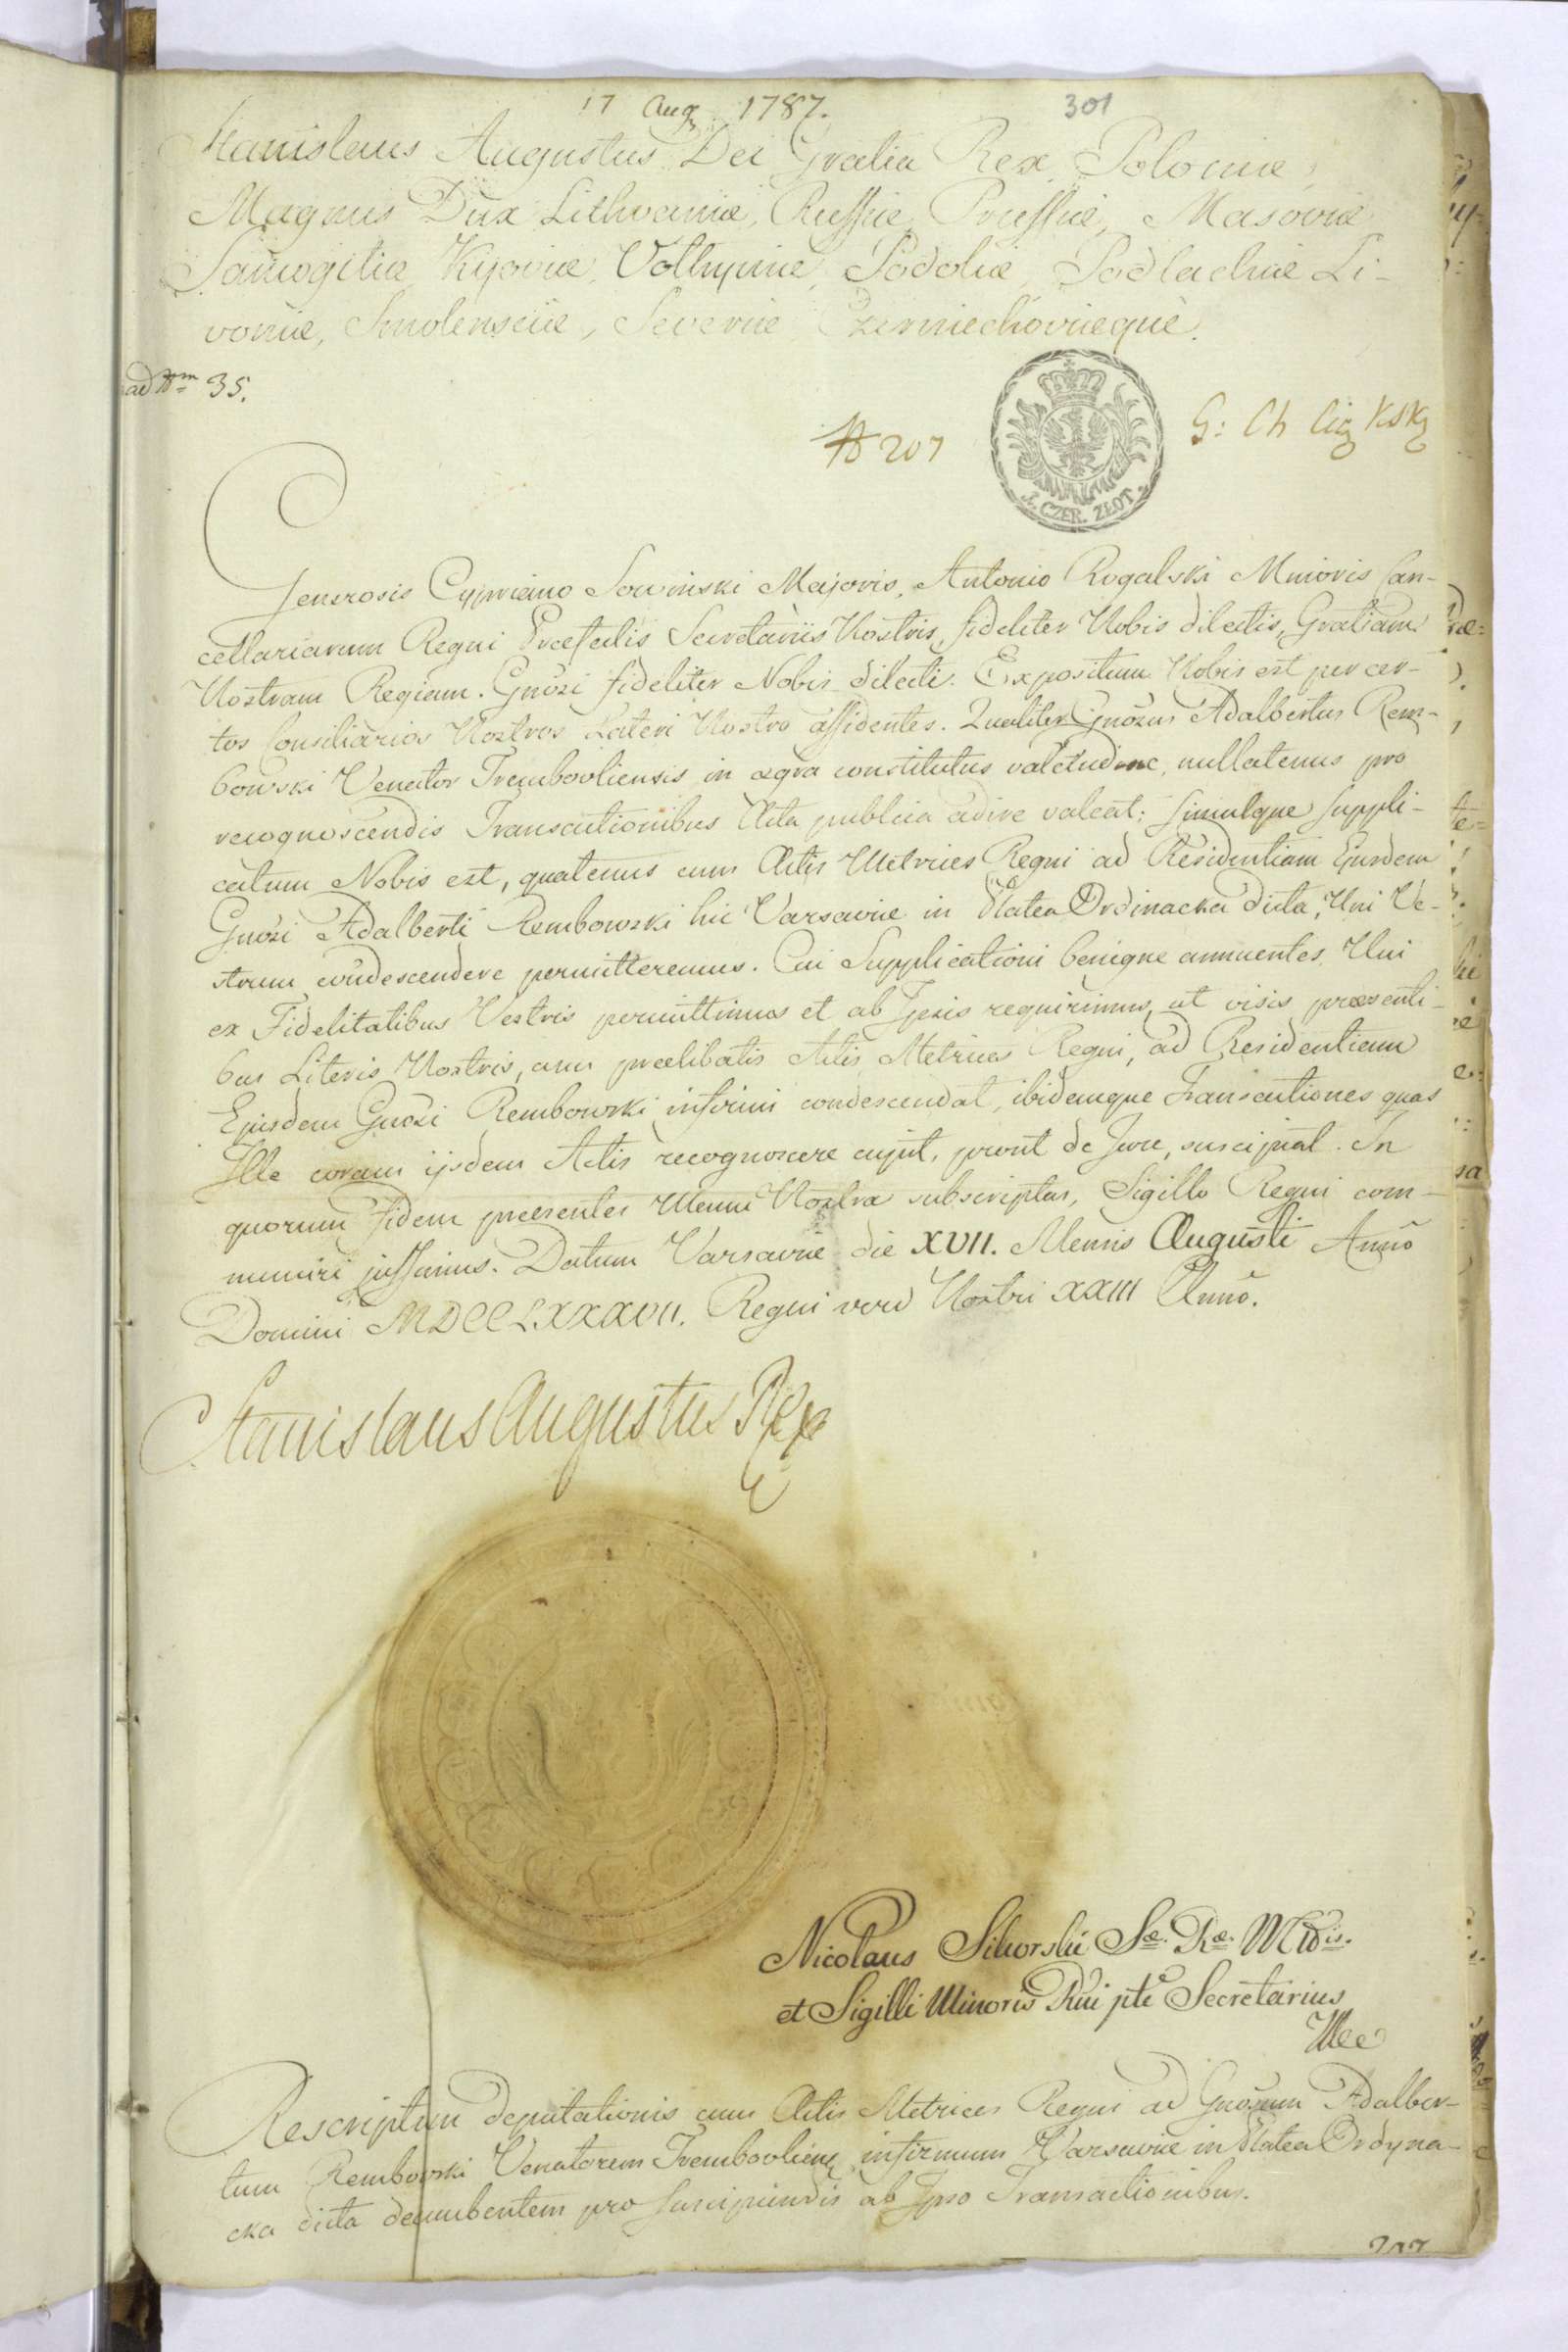 17 Aug 1787.
301
Stanislaus Augustus Dei Gratia Rex Poloniæ,
Magnus Dux Lithvaniæ, Russiæ, Prussiæ, Masoviæ
Samogitiæ, Kijoviæ, Volhyniæ, Podoliæ, Podlachiæ Li-
voniæ, Smolensciæ, Severiæ Czerniechoviæque.
ad Nm 35.
N 207
2. CZER. ZŁOT.
Generosis Cypriano Sowinski Majoris, Antonio Rogalski Minoris Can-
cellariarum Regni Præfectis Secretariis Nostris, fideliter Nobis dilectis, Gratiam
Nostram Regiam. Gnosi fideliter Nobis dilecti. Expositum Nobis est per cer-
tos Consiliarios Nostros Lateri Nostro assidentes. Qualiter Gnosus Adalbertus Rem-
bowski Venator Trembovliensis in ægra constitutus valetudine, nullatenus pro
recognoscendis Transactionibus Acta publica adire valeat; simulque suppli-
catum Nobis est, quatenus cum Actis Metrices Regni ad Residentiam Ejusdem
Gnosi Adalberti Rembowski hic Varsaviæ in Platea Ordinacka dicta, Uni Ve-
strum condescendere permitteremus. Cui Supplicationi benigne annuentes, Uni
ex Fidelitatibus Vestris permittimus et ab Ipsis requirimus, ut visis præsenti-
bus Literis Nostris, cum prælibatis Actis Metrices Regni, ad Residentiam
Ejusdem Gnosi Rembowski infirmi condescendat, ibidemque Transactiones quas
Ille coram ijsdem Actis recognoscere cupit, prout de Jure, suscipiat. In
quorum fidem præsentes Manu Nostra subscriptas, Sigillo Regni com-
muniri jussimus. Datum Varsaviæ die XVII. Mensis Augusti Anno
Domini MDCCLXXXVII. Regni vero Nostri XXIII Anno.
Stanislaus Augustus Rex
Nicolaus Sikorski Sæ. Ræ. Mtis.
et Sigilli Minoris Rni pte Secretarius
Rescriptum deputationis cum Actis Metrices Regni ad Gnosum Adalber-
tum Rembowski Venatorem Trembovlien infirmum Varsaviæ in Platea Ordyna-
cka dicta decumbentem pro suscipiendis ab Ipso Transactionibus.